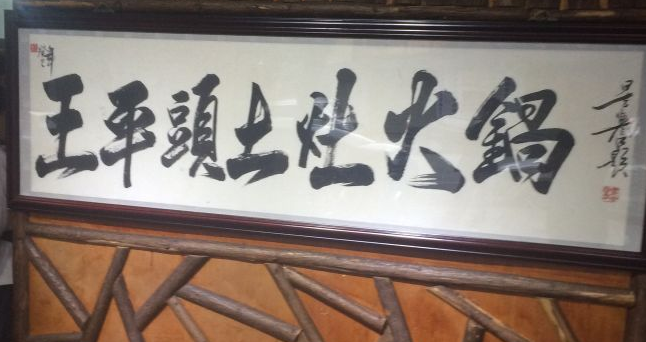 王平頭土灶火鍋